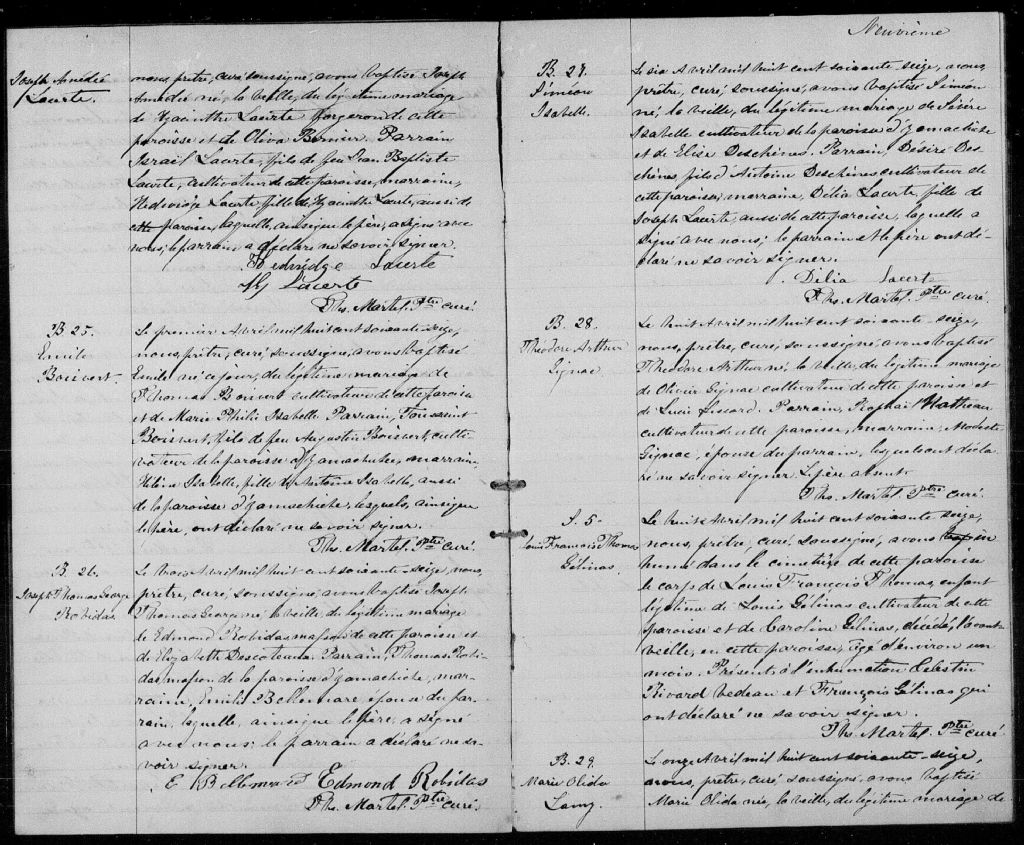 Joseph Amédé
Lacerte.
nous, prêtre, curé soussigné, avons baptisé Joseph
Amédé né, la veille, du légitime mariage
de Hyacinthe Lacerte forgeron de cette
paroisse et de Oliva Bernier. Parrain
Israïl Lacerte, fils de feu Jean Baptiste
Lacerte, cultivateur de cette paroisse, marraine,
Hedwidge Lacerte fille de Hyacinthe Lacerte, aussi de
cette paroisse, laquelle, ainsi que le père, a signé avec
nous; le parrain a déclaré ne savoir signer.
Hedwidge Lacerte
Hy Lacerte
Ths. Martel. Ptre curé.
B 25.
Emile
Boisvert.
Le premier Avril mil huit cent soixante-seize,
nous, prêtre, curé, soussigné, avons baptisé
Emile né ce jour, du légitime mariage de
Thomas Boisvert cultivateur de cette paroisse
et de Marie Philie Isabelle Parrain, Toussaint
Boisvert, fils de feu Augustin Boisvert, culti-
vateur de la paroisse d'Yamachiche, marraine,
Hélène Isabelle, fille de Antoine Isabelle, aussi
de la paroisse d'Yamachiche, lesquels, ainsi que
le père, ont déclaré ne savoir signer.
Ths. Martel. Ptre curé.
B. 26.
Joseph Thomas George
Robidas
Le trois Avril mil huit cent soixante-seize, nous,
prêtre, curé, soussigné, avons baptisé Joseph
Thomas George né, la veille du légitime mariage
de Edmond Robidas maçon de cette paroisse et
de Elizabeth Descoteaux. Parrain, Thomas Robi-
das maçon de la paroisse d'Yamachiche, mar-
raine, Emilie Bellemare épouse du par-
rain, laquelle, ainsi que le père, a signé
avec nous; le parrain a déclaré ne sa-
voir signer.
E Bellemare Edmond Robidas
Ths. Martel. Ptre curé.
Neuvième
B. 27.
Siméon
Isabelle.
Le six Avril mil huit cent soixante seize, nous,
prêtre, curé, soussigné, avons baptisé Siméon
né, la veille, du légitime mariage de Sévère
Isabelle cultivateur de la paroisse d'Yamachiche
et de Elise Deschênes. Parrain, Désiré Des-
chênes, fils d'Antoine Deschênes cultivateur de
cette paroisse, marraine, Délia Lacerte, fille de
Joseph Lacerte, aussi de cette paroisse, laquelle a
signé avec nous; le parrain et le père ont dé-
claré ne savoir signer.
Délia Lacerte
Ths. Martel. Ptre curé.
B. 28.
Théodore Arthur
Gignac
Le huit Avril mil huit cent soixante-seize,
nous, prêtre, curé, soussigné, avons baptisé
Théodore Arthur né, la veille du légitime mariage
de Olivier Gignac cultivateur de cette paroisse et
de Lucie Lessard. Parrain, Raphaël Matheau
cultivateur de cette paroisse, marraine, Modeste
Gignac, épouse du parrain, lesquels ont décla-
ré ne savoir signer. Le père absent.
Ths. Martel. Ptre curé.
S. 5-
Louis François Thomas
Gélinas.
Le huit Avril mil huit cent soixante seize,
nous, prêtre, curé, soussigné, avons in
humé dans le cimetière de cette paroisse
le corps de Louis François Thomas, enfant
légitime de Louis Gélinas cultivateur de cette
paroisse et de Caroline Gélinas, décédé, l'avant
veille, en cette paroisse, âgé d'environ un
mois. Présents à l'inhumation Célestin
Rivard Bedeau et François Gélinas qui
ont déclaré ne savoir signer.
Ths. Martel. Ptre curé.
B. 29.
Marie Olida
Lamy.
Le onze Avril mil huit cent soixante-seize,
nous, prêtre, curé soussigné, avons baptisé
Marie Olida née, la veille, du légitime mariage de